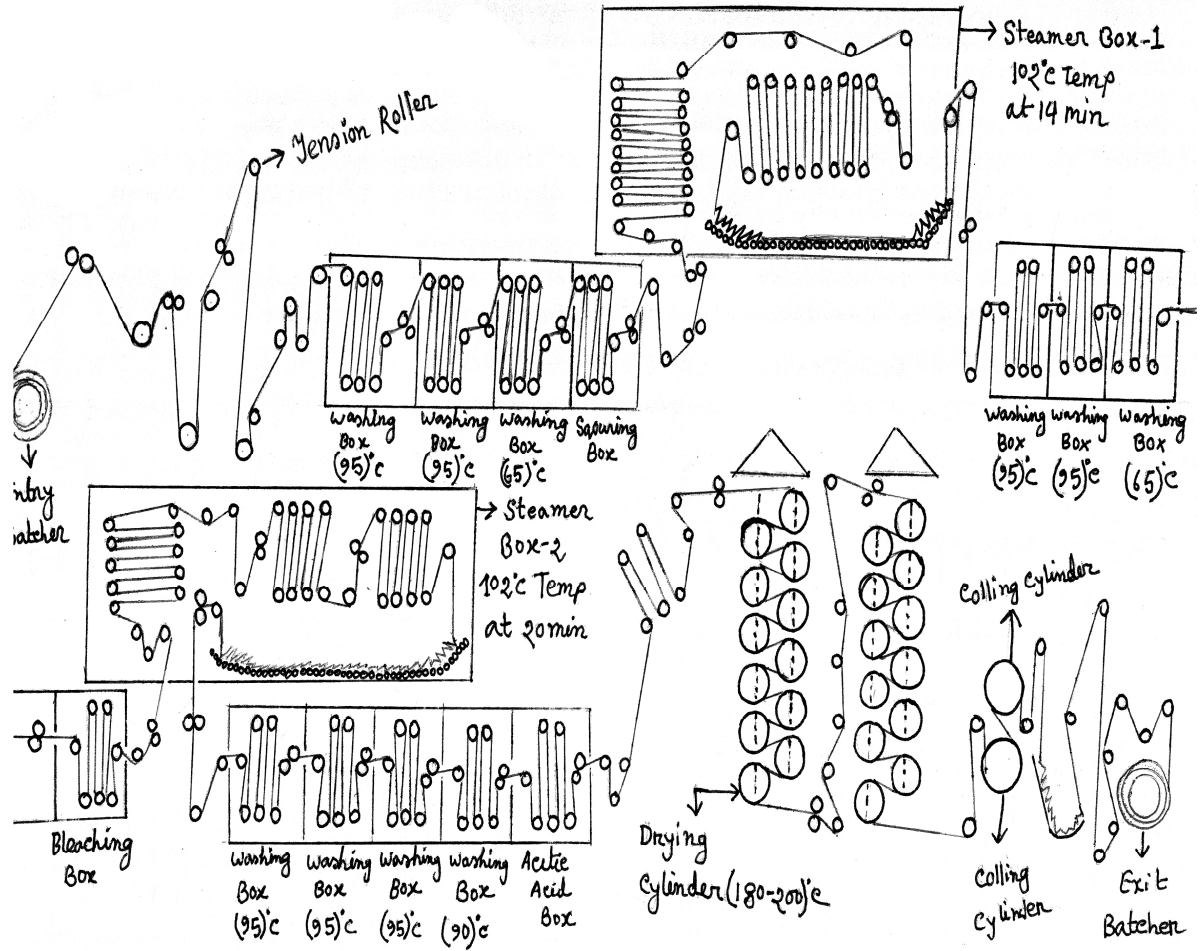 Steamer Box-1
102°C Temp
at 14 min
Tension Roller
Washing
Box
(95)°C
Washing
Box
(95)°C
Washing
Box
(65)°C
Sqouring
Box
Washing
Box
(95)°C
Washing
Box
(95)°C
Washing
Box
(65)°C
ntry
atcher
Steamer
Box-2
102°C Temp
at 20min
Bleaching
Box
Washing
Box
(95)°C
Washing
Box
(95)°C
Washing
Box
(95)°C
Washing
Box
(90)°C
Acetic
Acid
Box
Drying
Cylinder(180-200)°C
Colling Cylinder
Colling
Cylinder
Exit
Batcher